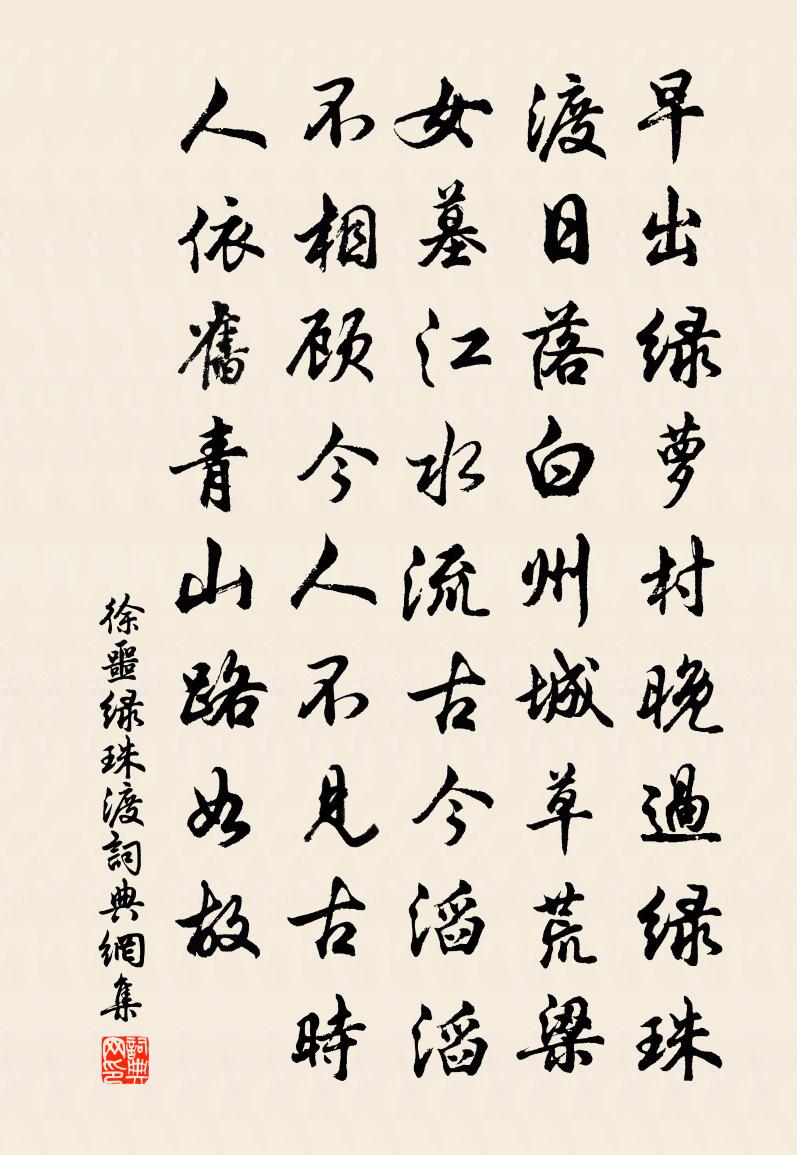 早出绿萝村晚過绿珠
渡日落白州城草荒梁
女墓江水流古今滔滔
不相顾今人不見古時
人依舊青山路如故
徐噩绿珠渡詞典網集
詞典网印